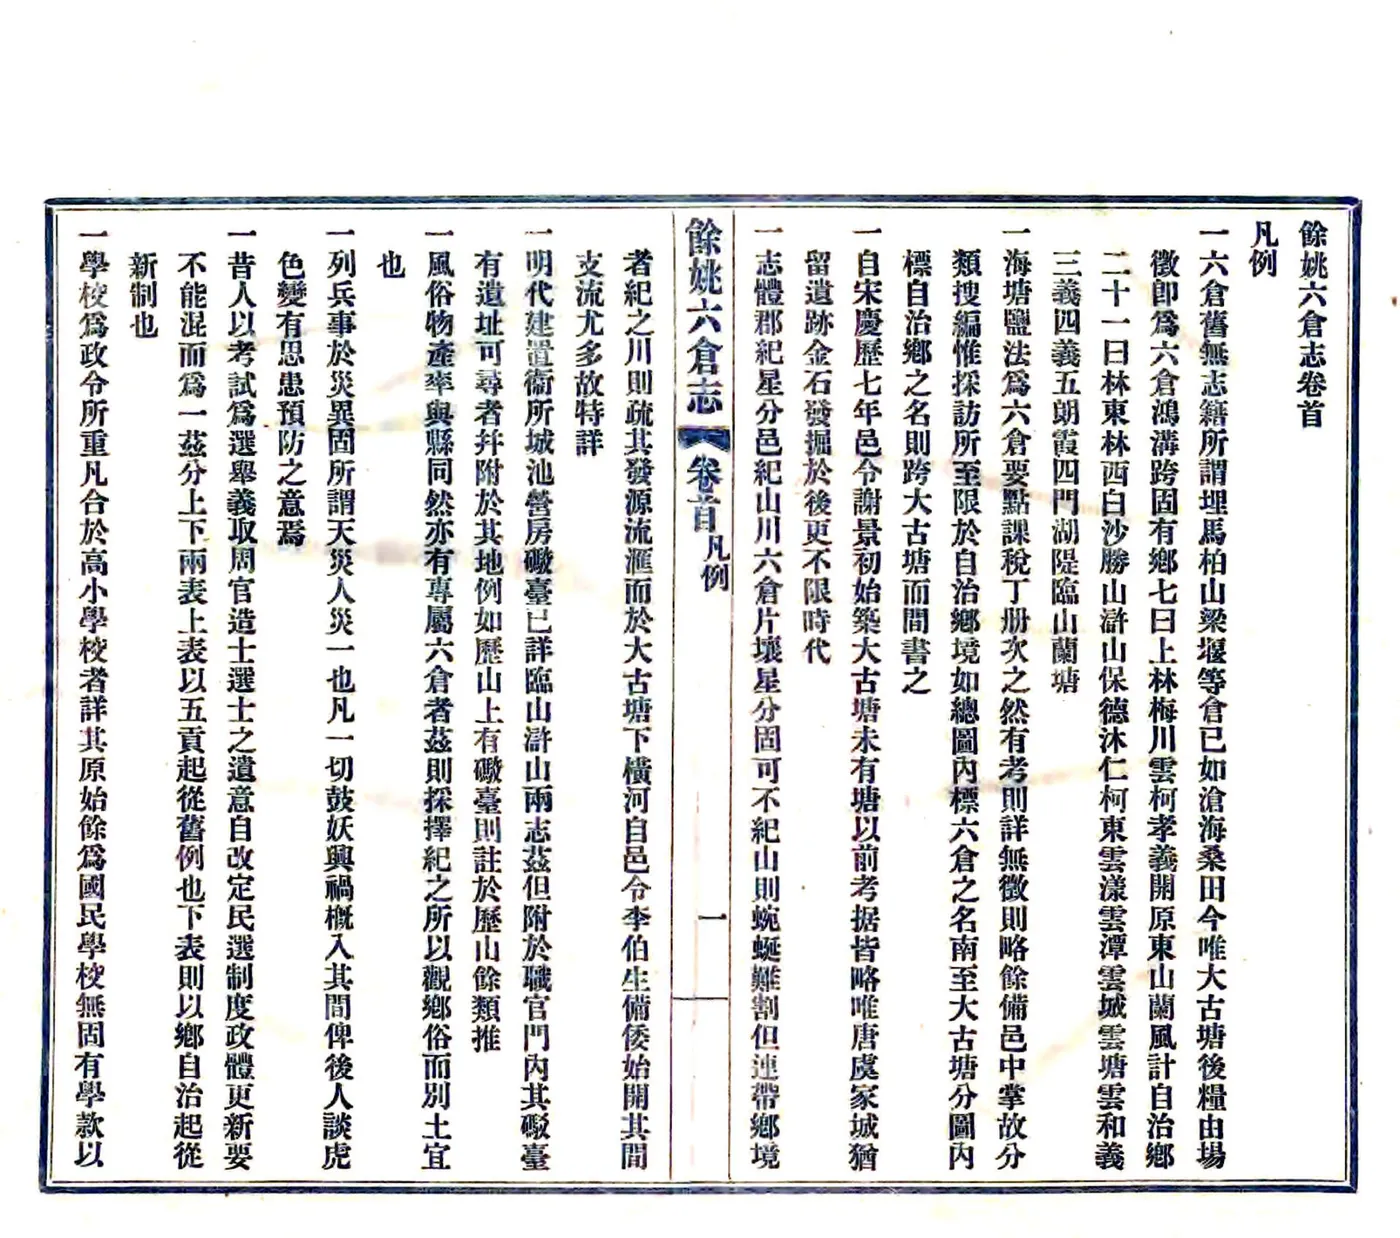 餘姚六倉志卷首
凡例
一六倉舊無志籍所謂埋馬柏山梁堰等倉已如滄海桑田今唯大古塘後糧由場
徵卽爲六倉鴻溝跨固有鄉七曰上林梅川雲柯孝義開原東山蘭風計自治鄉
二十一曰林東林西白沙勝山滸山保德沐仁柯東雲漾雲潭雲城雲塘雲和義
三義四義五朗霞四門湖隄臨山蘭塘
一海塘鹽法爲六倉要點課稅丁册次之然有考則詳無徵則略餘備邑中掌故分
類搜編惟採訪所至限於自治鄉境如總圖內標六倉之名南至大古塘分圖內
標自治鄉之名則跨大古塘而間書之
一自宋慶歷七年邑令謝景初始築大古塘未有塘以前考据皆略唯唐虞家城猶
留遺跡金石發掘於後更不限時代
一志體郡紀星分邑紀山川六倉片壤星分固可不紀山則蜿蜒難割但連帶鄉境
餘姚六倉志 卷首 凡例 一
者紀之川則疏其發源流滙而於大古塘下橫河自邑令李伯生備倭始開其間
支流尤多故特詳
一明代建置衞所城池營房礮臺已詳臨山滸山兩志茲但附於職官門內其礮臺
有遺址可尋者幷附於其地例如歷山上有礮臺則註於歷山餘類推
一風俗物產率與縣同然亦有專屬六倉者茲則採擇紀之所以觀鄉俗而別土宜
也
一列兵事於災異固所謂天災人災一也凡一切鼓妖興禍概入其間俾後人談虎
色變有思患預防之意焉
一昔人以考試爲選舉義取周官造士選士之遺意自改定民選制度政體更新要
不能混而爲一茲分上下兩表上表以五貢起從舊例也下表則以鄉自治起從
新制也
一學校爲政令所重凡合於高小學校者詳其原始餘爲國民學校無固有學款以